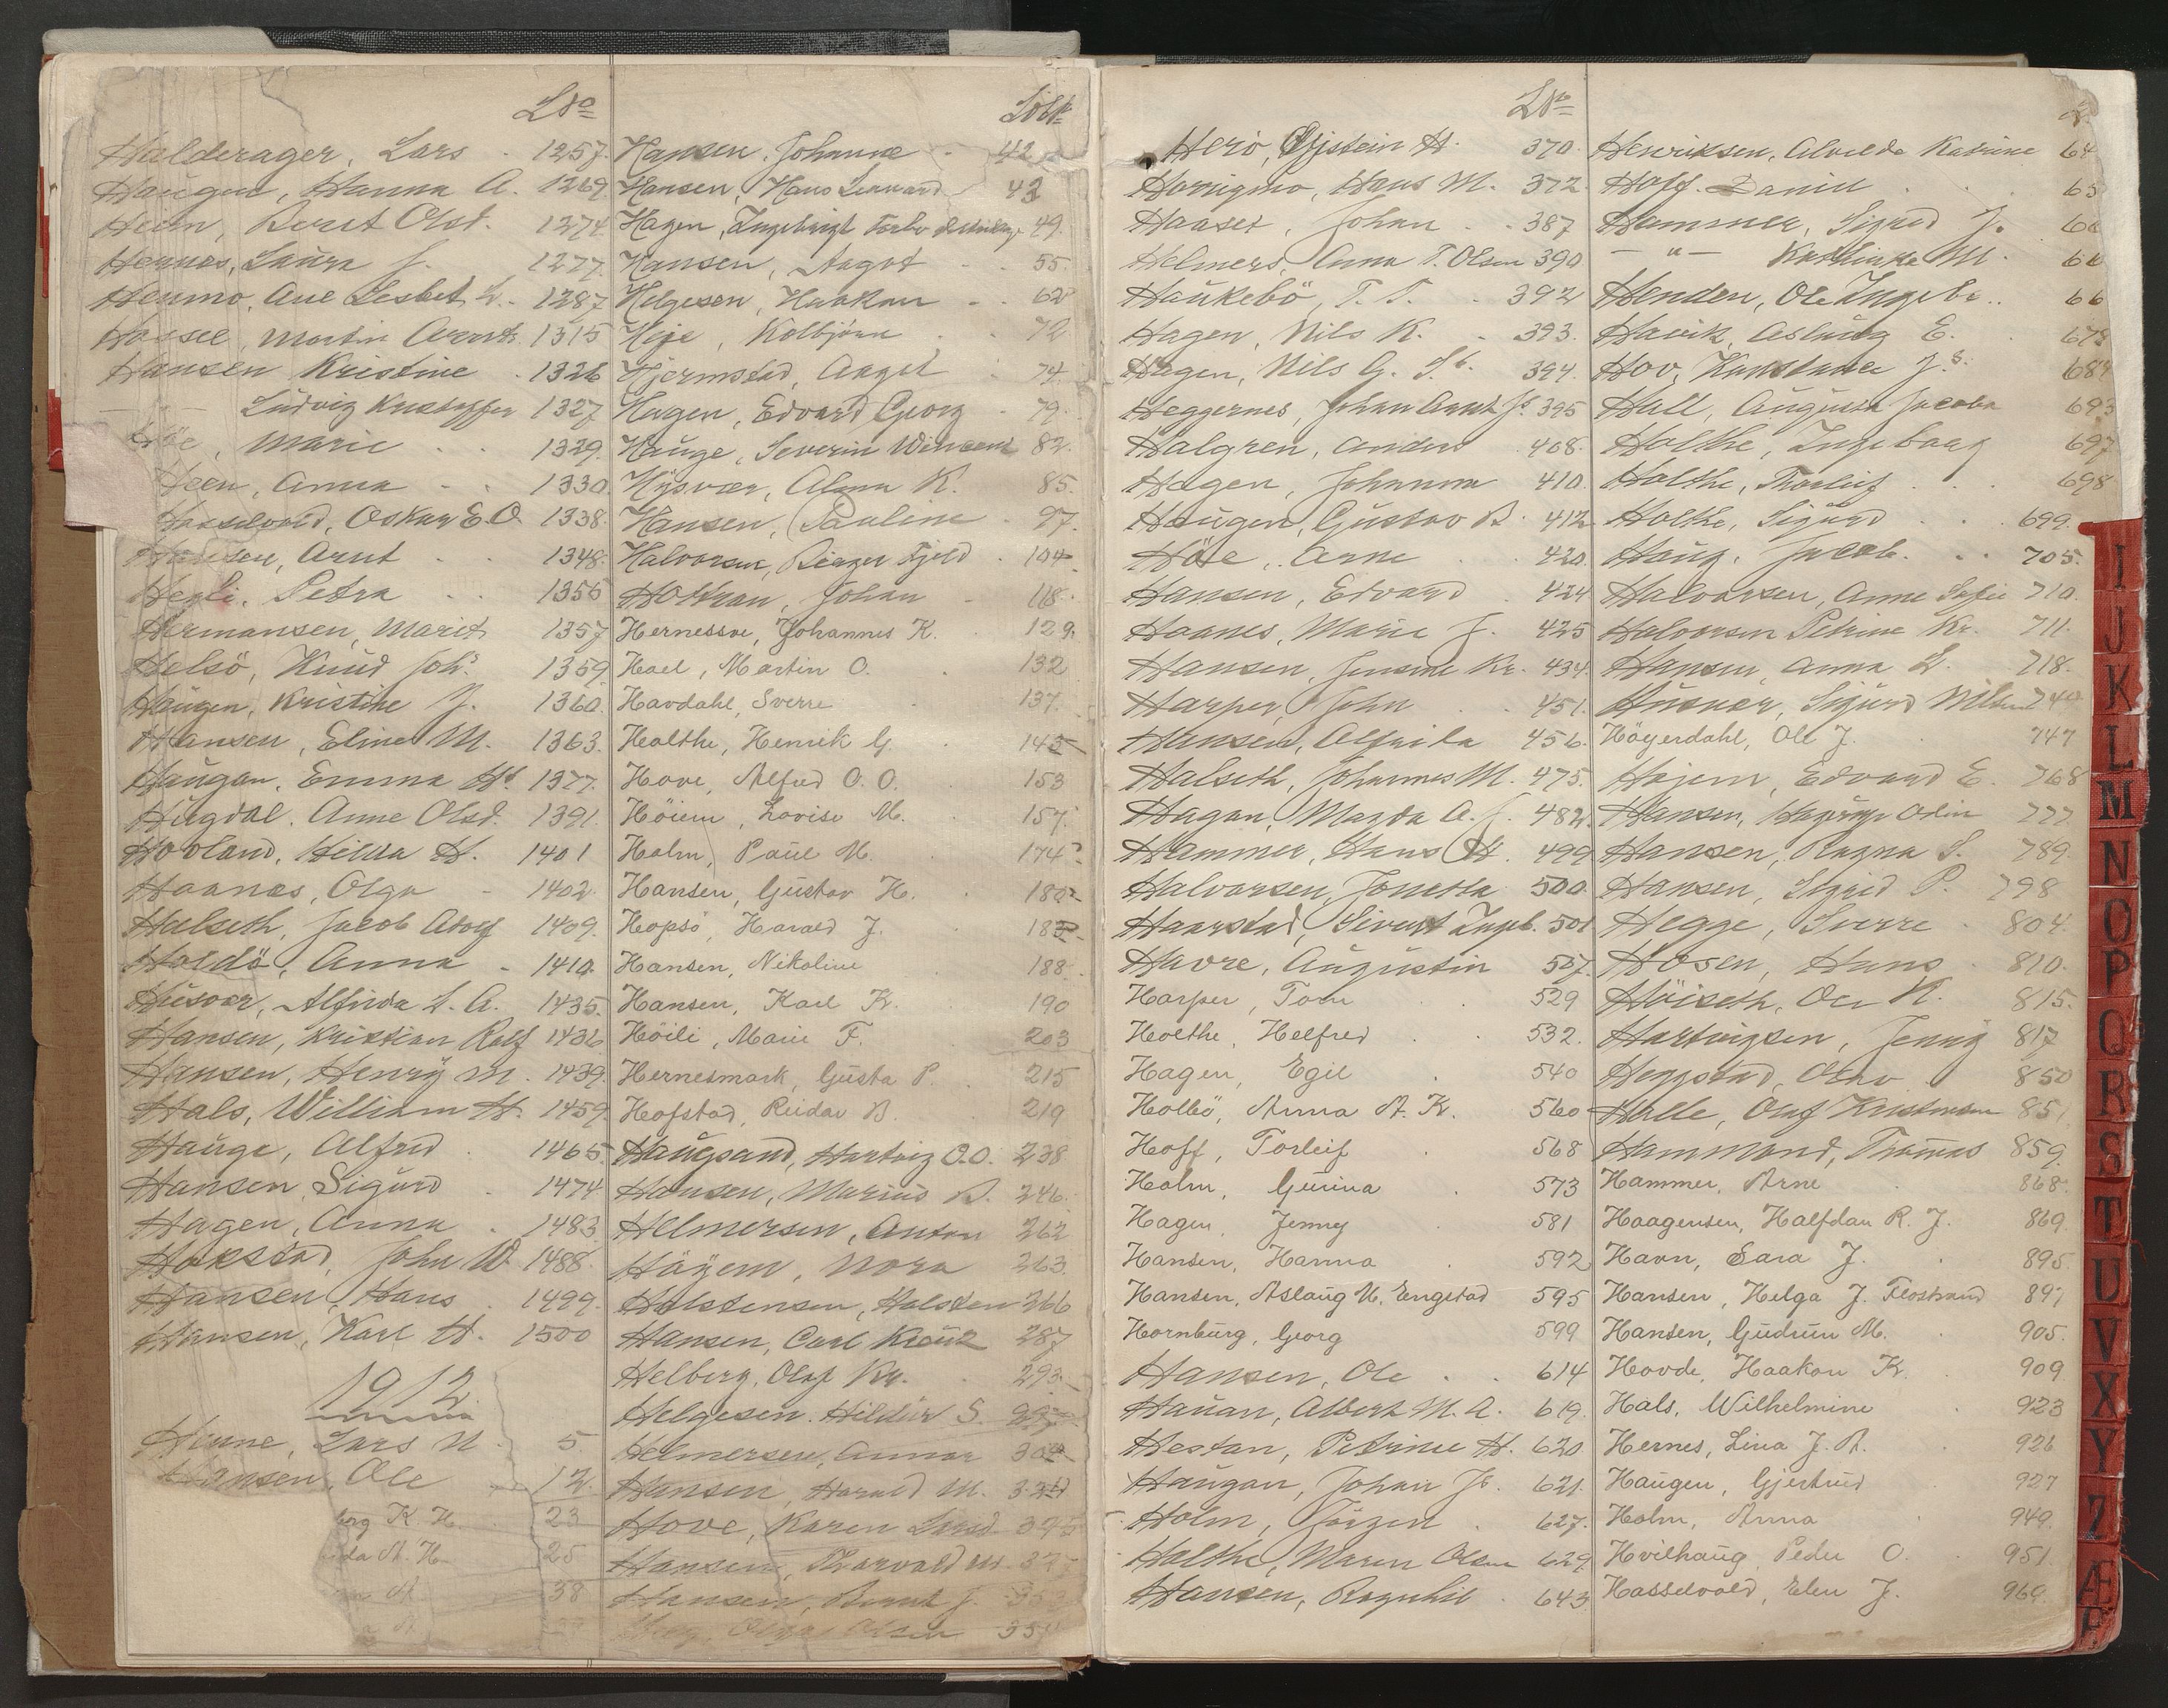 LNo
Halderager, Lars 1257.
Haugen, Hanna A. 1269.
Heen, Beret Olsd. 1274.
Hennes, Laura J. 1277.
Henmo, Ane Lesbet L. 1287
Hassel, Martin 1315
Hansen Kristine 1326
— " — Ludvig Kristoffer 1327
Marie 1329.
Heen, Anna 1330.
Hasselvold, Oskar E. O. 1338.
Arnt 1348.
Hegli, Petra 1356
Hermansen, Marit 1357
Helsö, Knud Johs 1359.
Haugen, Kristine J. 1360.
Hansen, Eline M. 1363.
Haugan, Emma 1377.
Hugdal. Anne Olsd. 1391.
Hovland, Hilda H. 1401
Haanes, Olga 1402.
Halseth, Jacob Adolf 1409.
Holdö, Anna 1410.
Husvær, Alfrida L. A. 1435.
Hansen, Kristian Rolf 1436
Hansen, Henry M. 1439.
Hals, William H. 1459.
Hauge, Alfred 1465
Hansen Sigurd 1474
Hagen, Anna 1483.
Hokstad, John W. 1488.
Hansen, Hans 1499.
Hansen, Karl H. 1500
1912.
Henne, Lars N. 5.
Hansen, Ole 12.
borg K. H. 23
da A. H. 25
38
LNo
Hansen, Johanne 42
Hansen, Hans Lennard 43
Hagen, Ingebrigt 49.
Hansen, Aagot 55.
Helgesen, Haakon 62
Hije, Kolbjörn 72
Hjermstad, Aagot 74.
Hagen, Edvard Georg 79.
Hauge, Severin Wincent 82.
Husvær, Alma K. 85.
Hansen, Pauline 97.
Halvorsen, Birger Fjeld 104.
Holtran, Johan 118.
Hernesøre, Johannes K. 129.
Hoel, Martin O. 132
Havdahl, Sverre 137.
Holthe, Henrik G. 145
Hove, Alfred O. O. 153
Höiem, Lovise M. 157.
Holm, Paul M. 174.
Hansen, Gustav H. 180
Hopsö, Harald J. 182
Hansen, Nikoline 188.
Hansen, Karl K. 190
Höili, Marie F. 203
Hernesmark, Gusta P. 215
Hofstad, Reidar B. 219
Haugsand, Hartvig O. O. 238
Hansen, Marius B. 246.
Helmersen, Anton 262
Häyem, Nora 263.
Holstensen, Holsten 266
Hansen, Carl 287
Helberg, Olaf Kr. 293.
Helgesen. Hildur S. 297
Helmersen, Annar 304
Hansen, Harald M.
Hove, Karen
Hansen, Thorvald M.
Hansen, Bernt J.
LNo
Herö, Øystein H. 370.
Horrigmo, Hans M. 372.
Haaset, Johan 387
Helmers, Anna T. Olsen 390
Haukebö, T. T. 392
Hagen, Nils K. 393.
Hagen, Nils G. S. 394.
Heggernes, Johan Arnt Js. 395
Halgren, Anders 408.
Hagen, Johanna 410.
Haugen, Gustav B. 412
Höe, Arne 420.
Hansen, Edvard 424
Haanes, Marie J. 425
Hansen, Jensine Kr. 434.
Harper, John 451.
Hansen, Alfrida 456.
Halseth, Johannes M. 475.
Hagan, Magda A. J. 482.
Hammer, Hans H. 499
Halvorsen, Jonetta 500.
Haarstad, Sivert Ingb. 501
Havre, Augustin 507.
Harper, Tom 529
Holthe, Helfred 532.
Hagen, Egil 540
Holbö, Anna A. K. 560
Hoff, Torleif 568
Holm, Gurina 573
Hagen, Jenny 581
Hansen, Hanna 592
Hansen, Aslaug N. Engstad 595
Hornburg, Georg 599
Hansen, Ole 614
Hauan, Albert M. A. 619.
Hestan, Petrine H. 620.
Haugan, Johan Js. 621.
Holm, Jörgen 627.
Holthe, Maren Olsen 629
Hansen, Ragnhil 643
Henriksen, Alvilde Katrine
Hoff. Daniel
Hammer, Sigrid J.
— " — Kathinka M.
Henden, Ole Ingebr.
Havik, Aslaug E.
Hov, Konstance J.s.
Hall, Augusta Jacoba 693
Holthe, Ingeborg 697
Holthe, Thorleif 698
Holthe, Sigurd 699.
Haug, Jacob. 705.
Halvorsen, Anne Sofie 710.
Halvorsen Petrine Kr. 711.
Hansen, Anna L. 718.
Husvær, Sigurd Nilsen 740
Höyerdahl, Ole J. 747
Hajem, Edvard E. 768
Hansen, Odin 777
Hansen, Ragna S. 789.
Hansen, Sigrid P. 798
Hegge, Sverre 804.
Hosen, Hans 810.
Höiseth, Ole K. 815.
Hartvigsen, Jenny 817
Heggstad, Olav 850
Halle, Olaf Kristensen 851
Hammond, Thomas 859.
Hammer, Arne 868.
Haagensen, Halfdan R. J. 869.
Havn, Sara J. 895.
Hansen, Helga J. Flostrand 897
Hansen, Gudrun M. 905.
Hovde, Haakon K. 909
Hals, Wilhelmine 923
Hernes, Lina J. A. 926
Haugen, Gjertrud 927
Holm, Anna 949.
Hvilhaug Peder O. 951.
Hasselvold, Elen J. 960.
I
J
K
L
M
N
O
P
Q
R
S
T
U
V
X
Y
Z
Æ